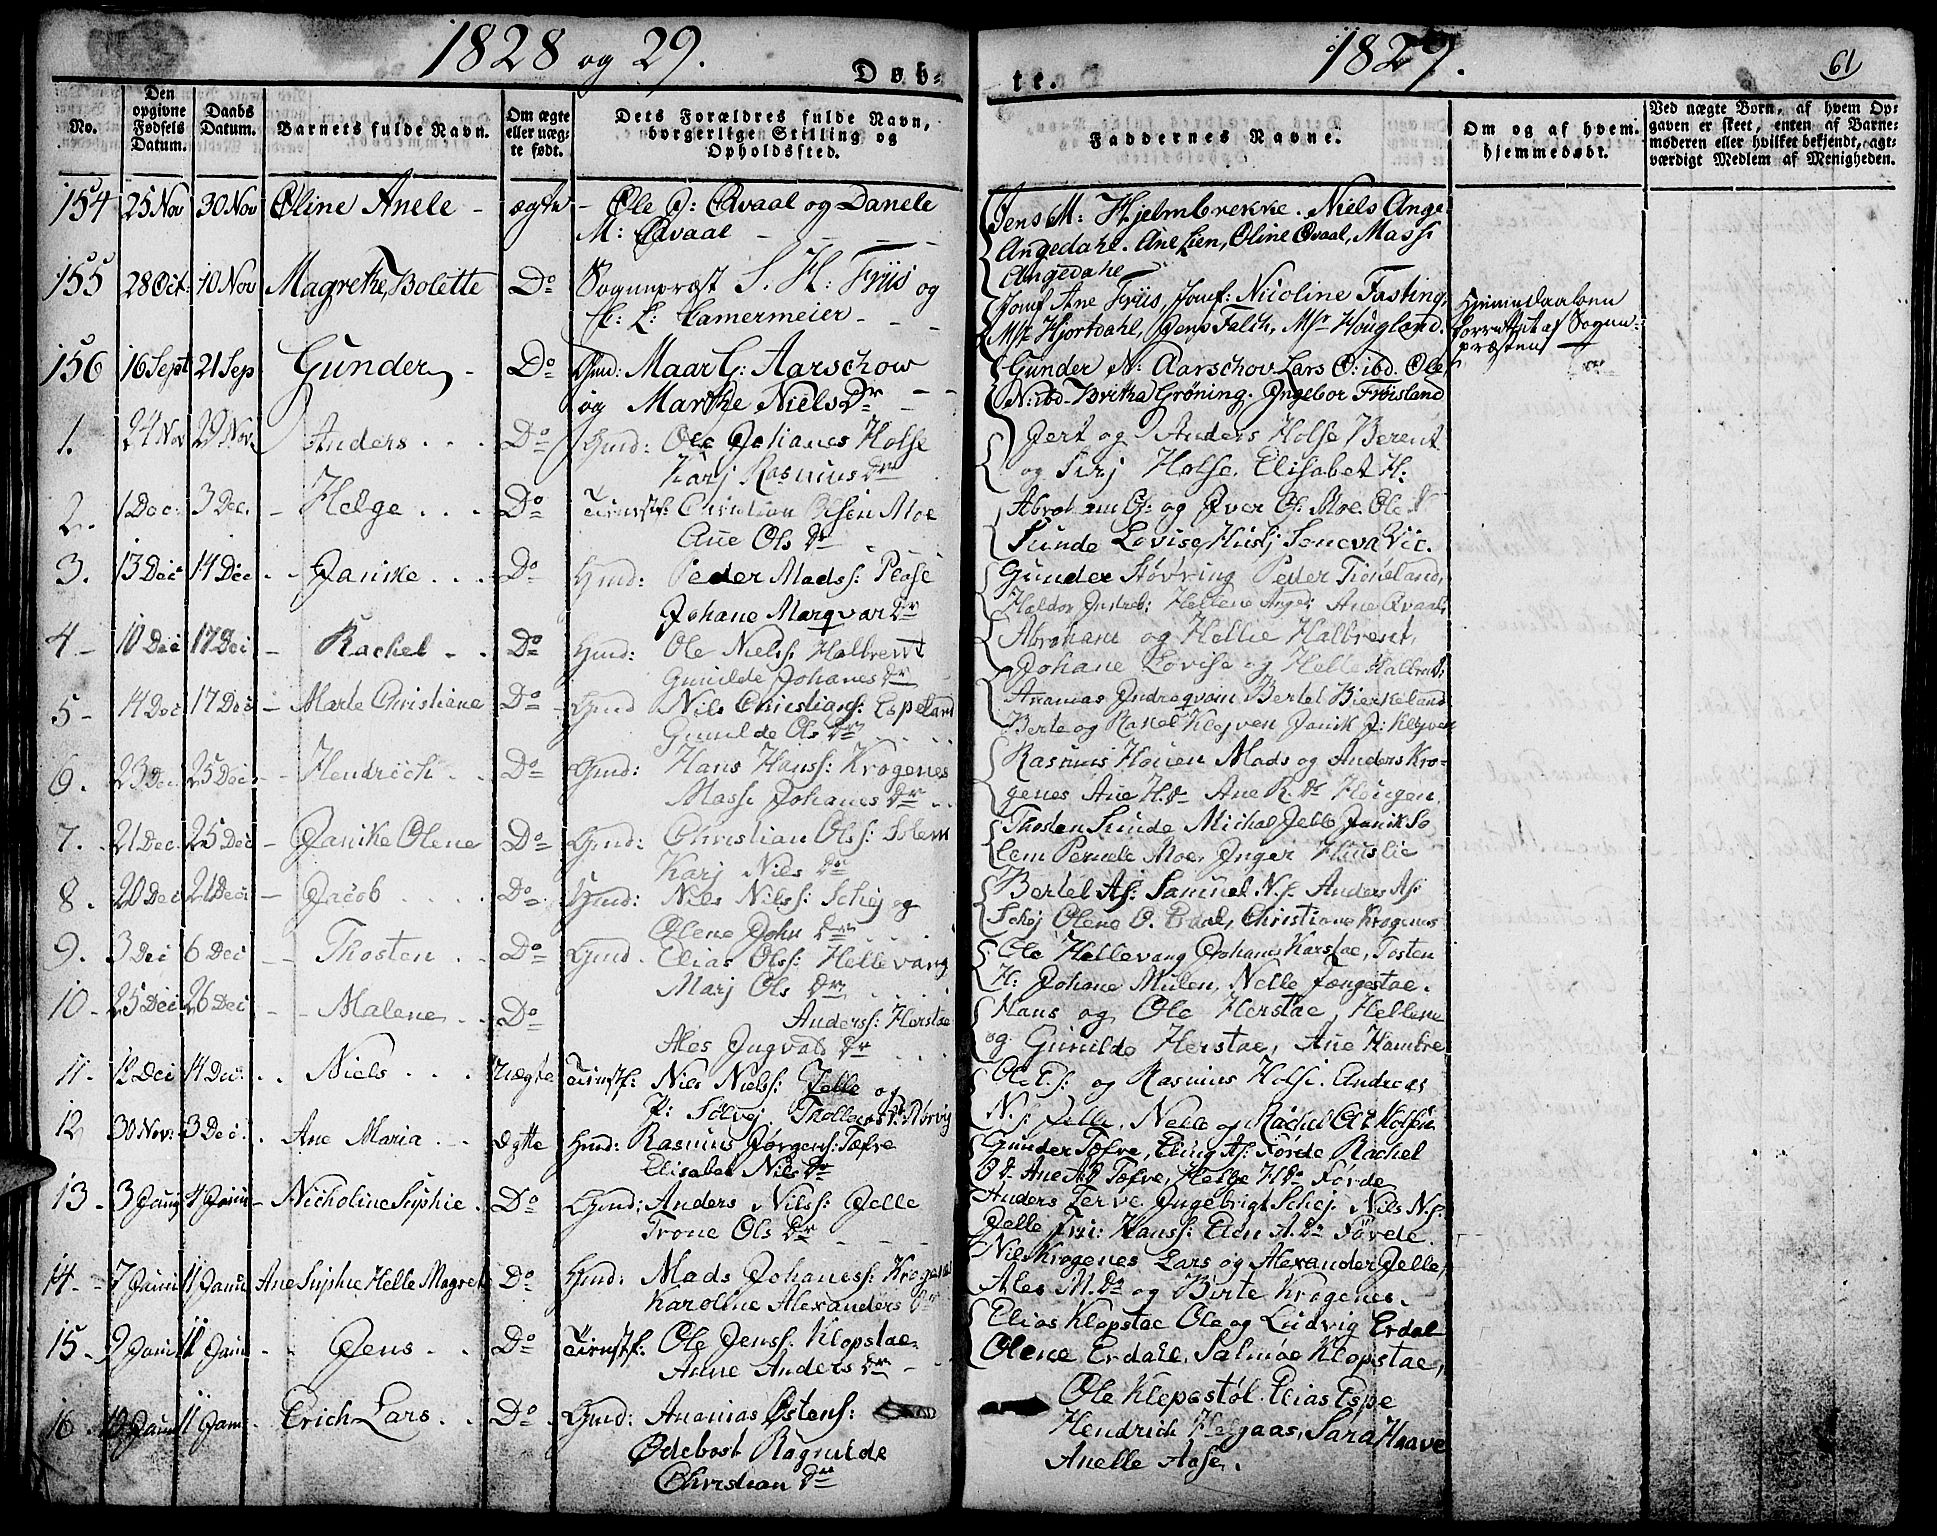 1828 og 29.
Døb-
No.
Den opgivne Fødsels Datum.
Daabs Datum.
Barnets fulde Navn.
Om ægte eller uæg-te født.
Dets Forældres fulde Navn, borgerlige Stilling og Opholdssted.
154 25 Nov 30 Nov Oline Anele - ægte - Ole J: Qvaal og Danele
M: Qvaal
155 28 Oct: 10 Nov Magrethe Bolette Do Sognepræst S. H: Friis og
C: L: Camermeier
156 16 Sept 21 Sep Gunder - Do Gmd: Maar G: Aarschow
og Marthe Niels Dr
1. 24 Nov 29 Nov Anders Do Gmd: Ole Johanes Holse
Karj Rasmus Dr
2. 1 Dec. 3 Dec. - Helge Do Christian Olsen Moe
Ane Ols Dr
3. 13 Dec 14 Dec Janike Do Gmd: Peder Madss: Plase
Johane Marqvar Dr
4 - 10 Dec 17 Dec - Rachel Do Gmd: Ole Nielss: Halbrent
Gunilde Johanes Dr
5 - 14 Dec 17 Dec - Marte Christiane Do Gmd Nils Christians: Espeland
Gunilde Ols Dr
6. 23 Dec. 25 Dec. Hendrich Do Gmd: Hans Hanss: Krogenes
Masse Johanes Dr
7. 21 Dec. 25 Dec - Janike Olene Do Gmd: Christian Olss: Solem
Karj Niels Dr
8. 20 Dec 21 Dec - Jacob Do Gmd: Nils Nilss: Schej og
Olene John Dr
9. 3 Dec 6 Dec - Thosten Do Gmd. Elias Olss: Hellevang
Marj Ols Dr
10. 25 Dec 26 Dec Malene Do Anderss: Herstae
Ales Ingvald Dr
11. 12 Dec 14 Dec. Niels Uægte Nils Nielss: Jelle og
P: Sølvej
12 30 Nov: 3 Dec. Ane Maria ægtte Gmd: Rasmus Jørgens: Tøfre
Elisabet Nils Dr
13. 3 Janu 4 Janu - Nicholine Sophie Do Gmd: Anders Nilss: Jelle
Trone Ols Dr
14 - 7 Janu 11 Janu Ane Sophie Helle Magrete Do Gmd: Mads Johaness: Krogenes
Karoline Alexanders Dr
15. 9 Janu 11 Janu Jens Do Ole Jenss: Klopstae
Anne Anders Dr
16 10 Janu 11 Janu Erich Lars Do Gmd: Ananias Østens:
Ødebost Ragnilde
Christian Dr
1829.
61
te.
Faddernes Navne.
Om og af hvem hjemmedøbt.
Ved uægte Børn, af hvem Op-
gaven er skeet, enten af Barne-
moderen eller hvilket bekjendt, agt-
værdigt Medlem af Menigheden.
Jens M: Hjelmbrekke. Niels Ange
Angedahl. Ane Lien, Oline Qvaal, Mass:
Angedahl
Jomf Ane Friis, Jomf: Nicoline Fasting,
Mr Hjortdahl, Jens Falch, Mr Hougland.
Hjemmedaaben
forrettet af Sogne-
præsten
Gunder N: Aarschov Lars O: ibd. Ole
N: ibd - Britha Grøning. Ingebor Frøisland
Jert og Anders Holse Berent
og Sirj Holse. Elisabet H:
Abraham O: og Iver O: Moe. Ole
Sunde Lovise Huslj Seneva Vie.
Gunder Støvring Peder Fioneland,
Haldor Indreb: Hellene Anged: Ane Qvaal,
Abraham og Hellie Halbrent,
Johane Lovise og Helle Halbrent
Ananias Indreqvam Bertel Bierkeland
Berte og Rakel Klejven Janik J: Klejven
Rasmus Houen Mads og Anders Kro-
genes Ane H. Dr Ane R. Dr Hougen.
Thosten Sunde Michal Jelle Janik So
lem Pernele Moe, Inger Huuslie
Bertel As: Samuel N.s: Anders As:
Schej Olene O. Erdal, Christiane Krogenes
Ole Hellevang Johanes Karstae, Tosten
H: Johane Mulen, Nelle Jongestae.
Hans og Ole Herstae, Hellene
og Gunilde Herstae, Ane Hambre
Ole E.s: og Rasmus Holse. Andreas
N.s: Jelle, Nelle og Rachel
Gunder Tøfre, Eling As: Førde Rachel
O Dr Ane A D Tøfre, Helge H Dr Førde
Anders Terve Ingebrigt Schej. Nils N.s:
Jelle Fri: Hanss: Elen A. Dr Førde.
Nils Krogenes Lars og Alexander Jelle,
Ales M. Dr og Birte Krogenes.
Elias Klopstae Ole og Ludvig Erdal
Olene Erdahl. Salmoe Klopstae,
Ole Klepestøl. Elias Espe
Hendrich Helgaas, Sara Haave
Anelle Aase.